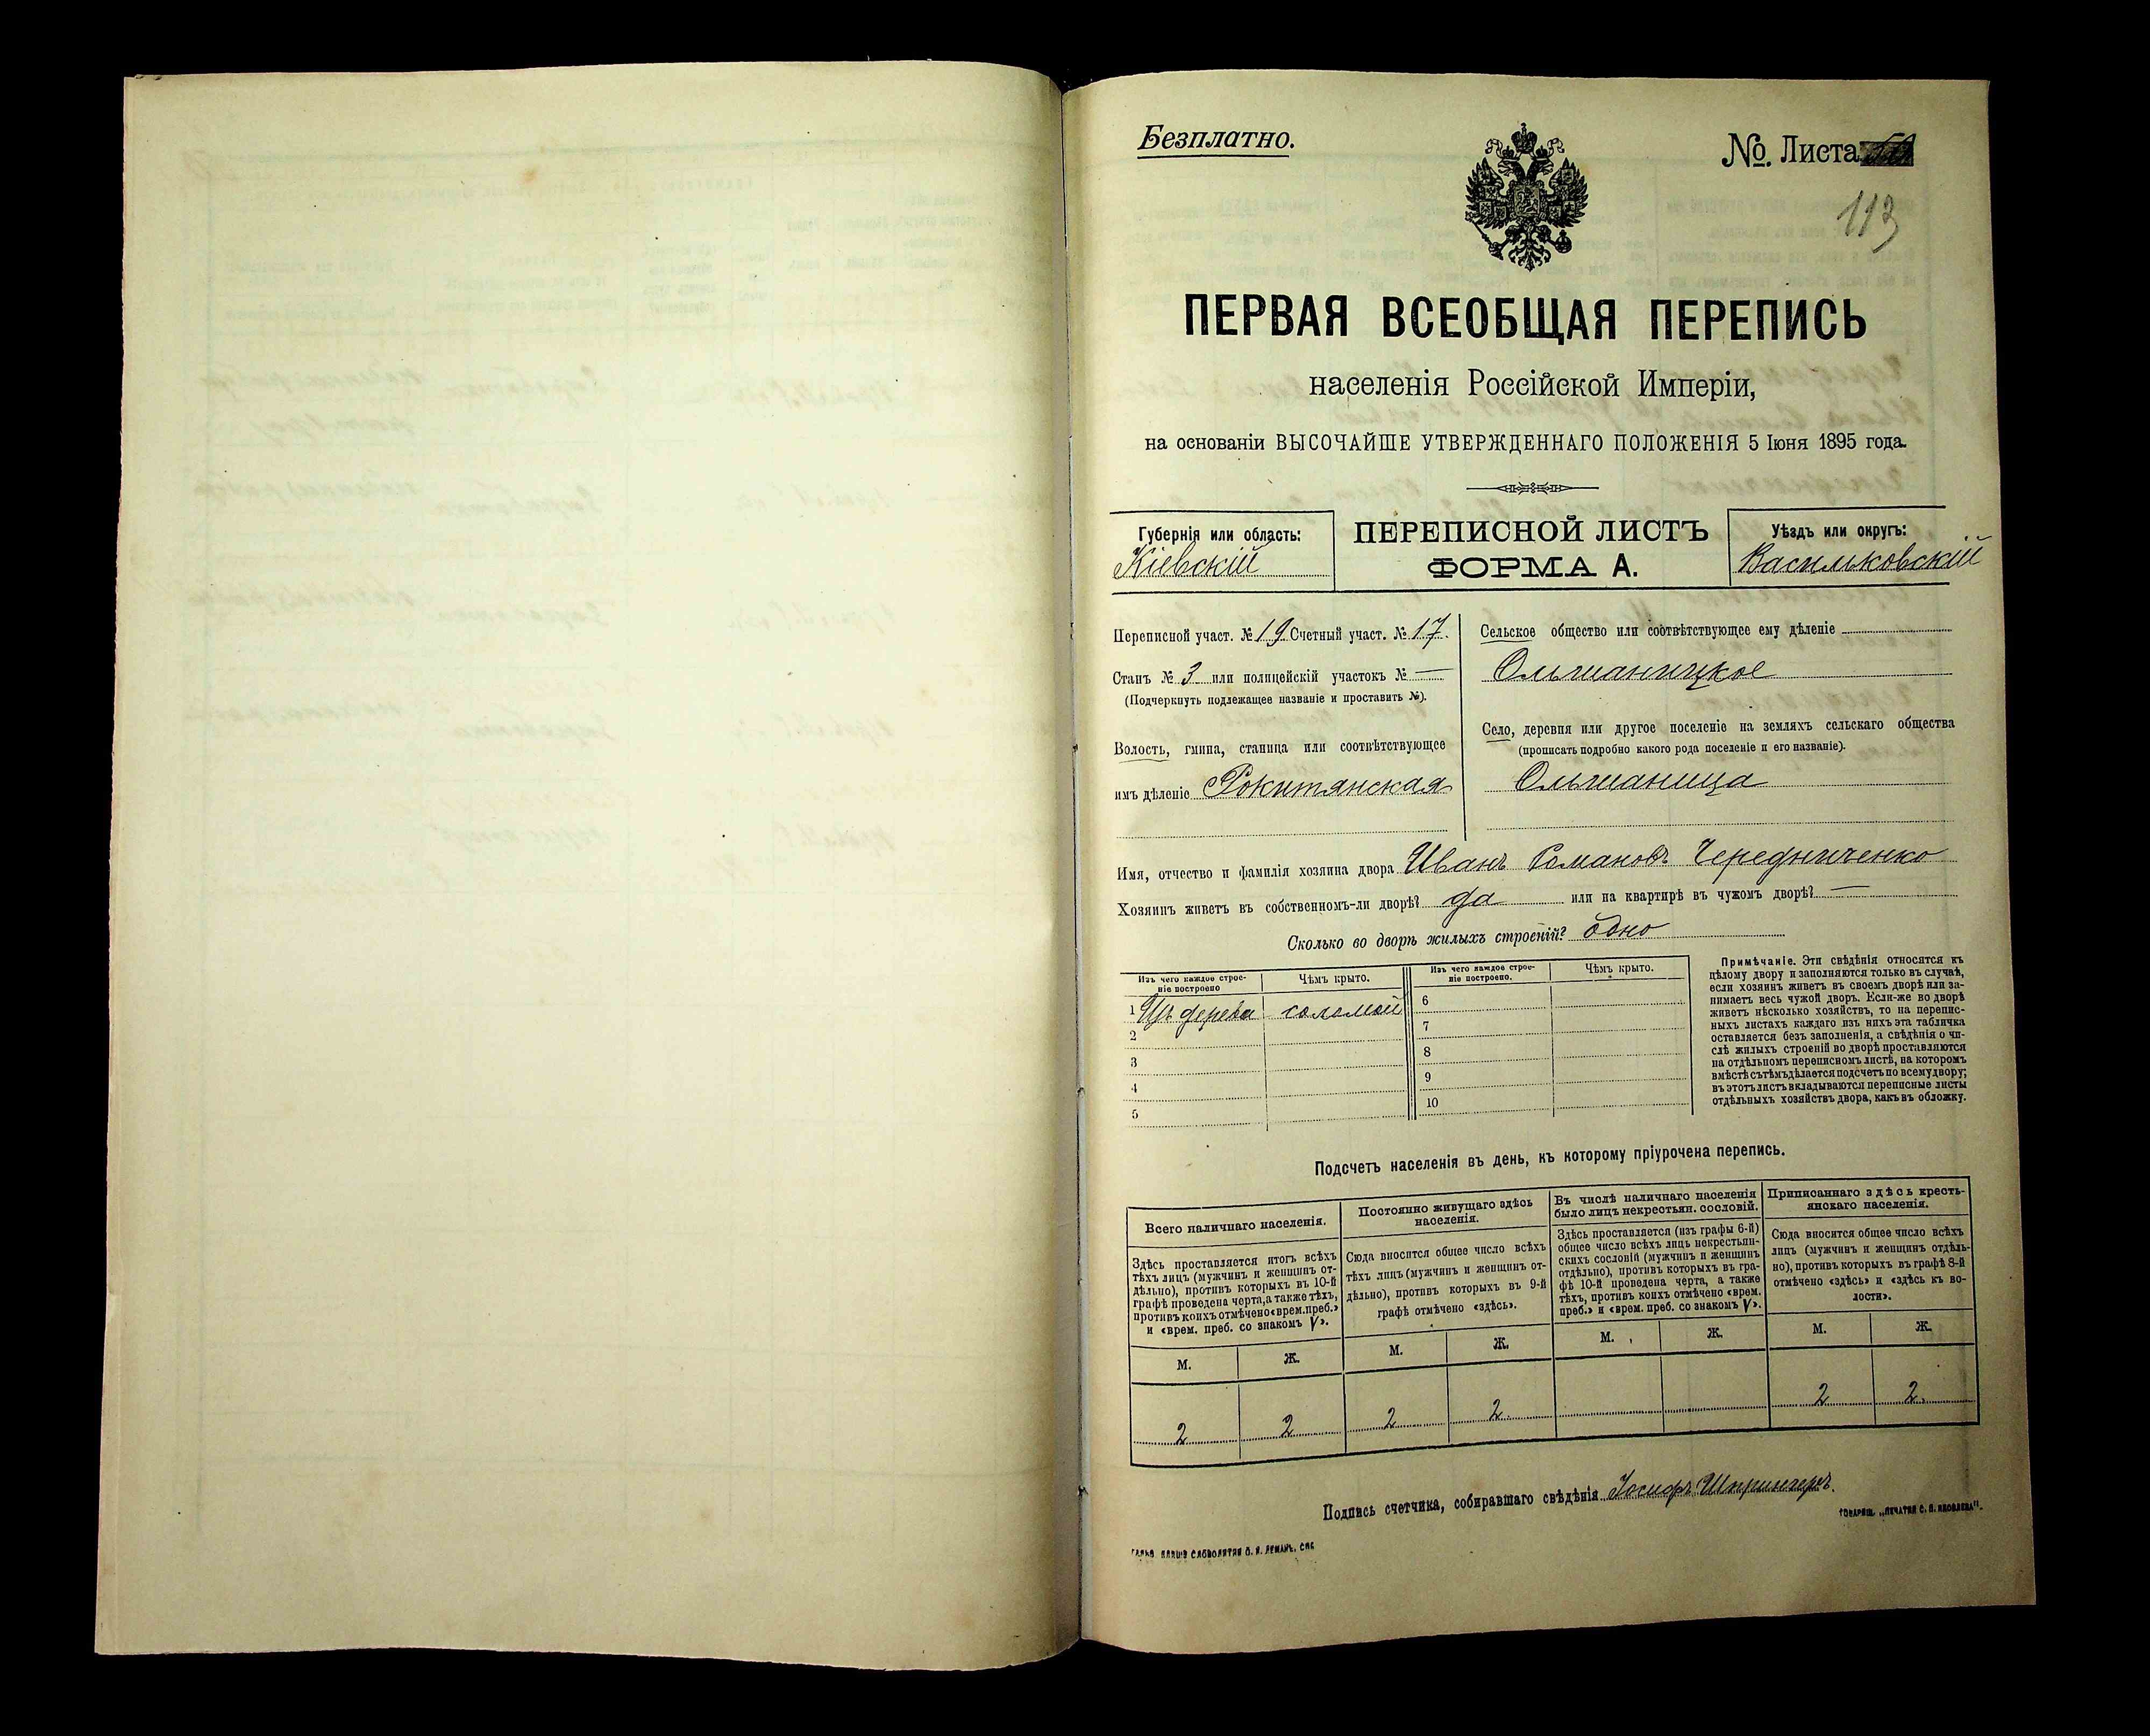 Безплатно.
№. Листа
113
ПЕРВАЯ ВСЕОБЩАЯ ПЕРЕПИСЬ
населенія Россійской Имперіи,
на основаніи ВЫСОЧАЙШЕ УТВЕРЖДЕННАГО ПОЛОЖЕНІЯ 5 Іюня 1895 года.
Губернія или область:
Кіевскій
ПЕРЕПИСНОЙ ЛИСТЪ
ФОРМА А.
Уѣздъ или округъ:
Васильковскій
Переписной участ. № 19 Счетный участ. № 17.
Станъ № 3 или полицейскій участокъ № —
(Подчеркнуть подлежащее названіе и проставить №).
Волость, гмина, станица или соотвѣтствующее
имъ дѣленіе Рокитянская
Сельское общество или соотвѣтствующее ему дѣленіе
Ольшаницкое
Село, деревня или другое поселеніе на земляхъ сельскаго общества
(прописать подробно какого рода поселеніе и его названіе).
Ольшаница
Имя, отчество и фамилія хозяина двора Иванъ Романовъ Чередниченко
Хозяинъ живетъ въ собственномъ-ли дворѣ? да или на квартирѣ въ чужомъ дворѣ? —
Сколько во дворѣ жилыхъ строеній? одно
Изъ чего каждое строе-
ніе построено
Чѣмъ крыто.
Изъ чего каждое строе-
ніе построено.
Чѣмъ крыто.
1 Изъ дерева соломой
2
3
4
5
6
7
8
9
10
Примѣчаніе. Эти свѣдѣнія относятся къ
цѣлому двору и заполняются только въ случаѣ,
если хозяинъ живетъ въ своемъ дворѣ или за-
нимаетъ весь чужой дворъ. Если-же во дворѣ
живетъ нѣсколько хозяйствъ, то на перепис-
ныхъ листахъ каждаго изъ нихъ эта табличка
оставляется безъ заполненія, а свѣдѣнія о чи-
слѣ жилыхъ строеній во дворѣ проставляются
на отдѣльномъ переписномъ листѣ, на которомъ
вмѣстѣ съ тѣмъ дѣлается подсчетъ по всему двору;
въ этотъ листъ вкладываются переписные листы
отдѣльныхъ хозяйствъ двора, какъ въ обложку.
Подсчетъ населенія въ день, къ которому пріурочена перепись.
Всего наличнаго населенія.
Здѣсь проставляется итогъ всѣхъ
тѣхъ лицъ (мужчинъ и женщинъ от-
дѣльно), противъ которыхъ въ 10-й
графѣ проведена черта, а также тѣхъ,
противъ коихъ отмѣчено «врем. преб.»
и «врем. преб. со знакомъ V».
Постоянно живущаго здѣсь
населенія.
Сюда вносится общее число всѣхъ
тѣхъ лицъ (мужчинъ и женщинъ от-
дѣльно), противъ которыхъ въ 9-й
графѣ отмѣчено «здѣсь».
Въ числѣ наличнаго населенія
было лицъ некрестьян. сословій.
Здѣсь проставляется (изъ графы 6-й)
общее число всѣхъ лицъ некрестьян-
скихъ сословій (мужчинъ и женщинъ
отдѣльно), противъ которыхъ въ гра-
фѣ 10-й проведена черта, а также
тѣхъ, противъ коихъ отмѣчено «врем.
преб.» и «врем. преб. со знакомъ V».
Приписаннаго здѣсь кресть-
янскаго населенія.
Сюда вносится общее число всѣхъ
лицъ (мужчинъ и женщинъ отдѣль-
но), противъ которыхъ въ графѣ 8-й
отмѣчено «здѣсь» и «здѣсь къ во-
лости».
М. Ж. М. Ж. М. Ж. М. Ж.
2 2 2 2 2 2
Подпись счетчика, собиравшаго свѣдѣнія Іосифъ Шпрингеръ.